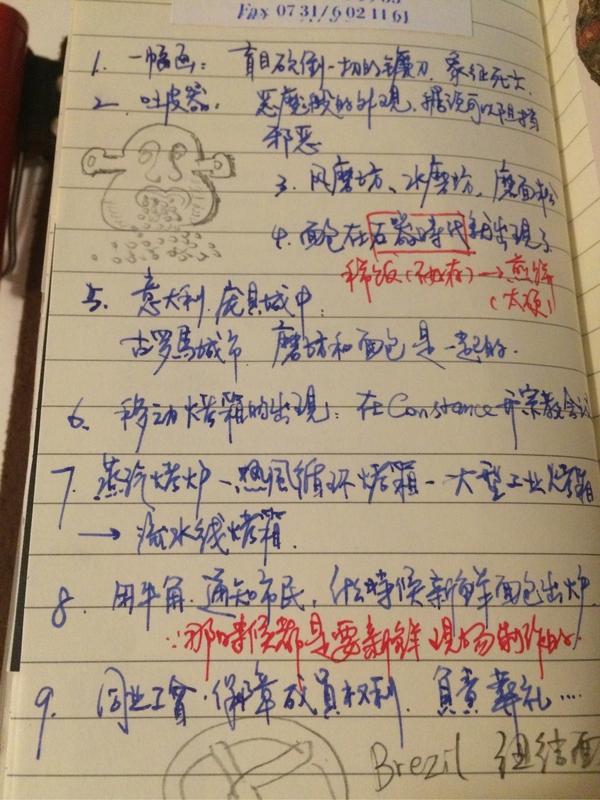 Fax 0731/6021161
1. 一幅画: 盲目砍倒一切的镰刀. 象征死亡
2. 吐皮器. 恶魔般的外观, 据说可以阻挡
邪恶
3. 风磨坊、水磨坊, 磨面粉
4. 面包在石器時代就出現了
稀饭(不好存) → 煎饼
(太硬)
5. 意大利. 庞贝城中.
古罗馬城市. 磨坊和面包是一起的.
6. 移动烤箱的出現: 在Constance开宗教会议
7. 蒸汽烤炉 — 热風循环烤箱 — 大型工业烤箱
→ 流水线烤箱.
8. 用牛角. 通知市民, 什么時候新鲜面包出炉.
∵那時候都是要新鲜現场制作的.
9. 同业工會. 保障成員权利. 負責葬礼....
Brezil 纽结面